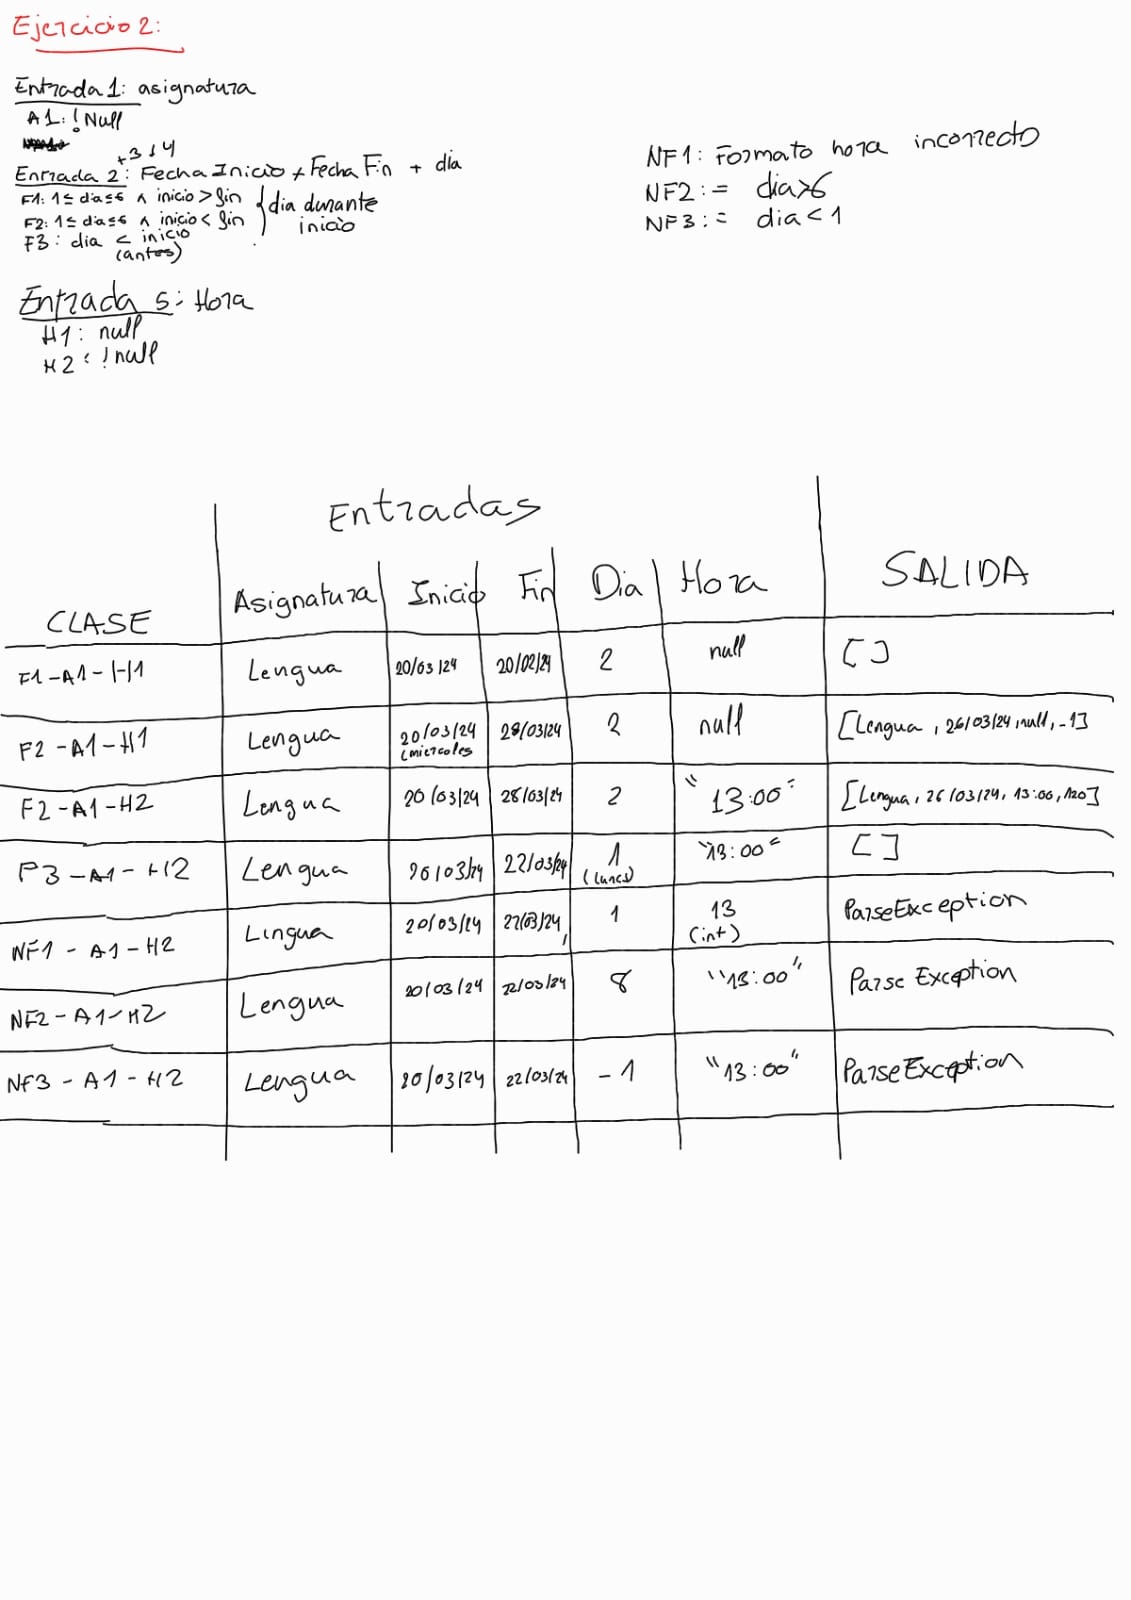 Ejercicio 2:
Entrada 1: asignatura
A1: !Null
+3 y 4
Entrada 2: Fecha Inicio + Fecha Fin + día
F1: 1 ≤ dia ≤ 6 ∧ inicio > fin
F2: 1 ≤ dia ≤ 6 ∧ inicio < fin
} dia durante inicio
F3: dia < inicio
(antes)
Entrada 5: Hora
H1: null
H2: !null
NF1: Formato hora incorrecto
NF2: = dia>6
NF3: = dia < 1
Entradas
CLASE Asignatura Inicio Fin Dia Hora SALIDA
F1-A1-H1 Lengua 20/03/24 20/02/24 2 null []
F2-A1-H1 Lengua 20/03/24 (miercoles 28/03/24 2 null [Lengua, 26/03/24, null, -1]
F2-A1-H2 Lengua 20/03/24 28/03/24 2 "13:00" [Lengua, 26/03/24, 13:00, 120]
F3-A1-H2 Lengua 26/03/24 22/03/24 1 (lunes) "13:00" []
NF1-A1-H2 Lengua 20/03/24 27/03/24 1 13 (int) ParseException
NF2-A1-H2 Lengua 20/03/24 22/03/24 8 "13:00" Parse Exception
NF3-A1-H2 Lengua 20/03/24 22/03/24 -1 "13:00" ParseException